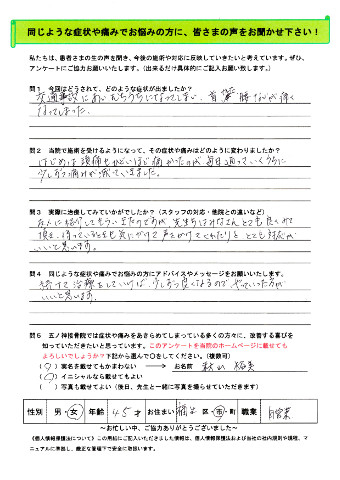 同じような症状や痛みでお悩みの方に、皆さまの声をお聞かせ下さい！
私たちは、患者さまの生の声を聞き、今後の施術や対応に反映していきたいと考えています。ぜひ、
アンケートにご協力お願いいたします。（出来るだけ具体的にご記入お願い致します。）
問１　今回はどうされて、どのような症状が出ましたか？
交通事故にあい、むちうちになってしまい、首 腰 なんか痛く
なってしまった。
問２　当院で施術を受けるようになって、その症状や痛みはどのように変わりましたか？
はじめは頭痛もひどいほど痛かったのが、毎日通っていくうちに
少しずつ痛みが減っていきました。
問３　実際に治療してみていかがでしたか？（スタッフの対応・他院との違いなど）
友人に紹介してもらい来たのですが、先生方はみなさんとても良くして
頂き、待っているときも気にかけて声をかけてくれたりと とても対応が
いいと思います。
問４　同じような症状や痛みでお悩みの方にアドバイスやメッセージをお願いいたします。
続けて治療をしていけば、少しずつ良くなるので、やっていった方が
いいと思います。
問５　五ノ神接骨院では症状や痛みをあきらめてしまっている多くの方々に、改善する喜びを
知っていただきたいと思っています。このアンケートを当院のホームページに載せても
よろしいでしょうか？下記から選んで○をしてください。（複数可）
（○）実名を載せてもかまわない → お名前
（○）イニシャルなら載せてもよい
（　）写真も載せてよい（後日、先生と一緒に写真を撮らせていただきます）
性別 男・女 年齢 45才 お住まい 福生 区・市・町 職業 自営業
～お忙しい中、ご協力ありがとうございました～
《個人情報保護法について》この用紙にご記入いただきました情報は、個人情報保護法および当社の社内規則や規程、マ
ニュアルに準拠し、厳正な管理下で安全に取扱います。